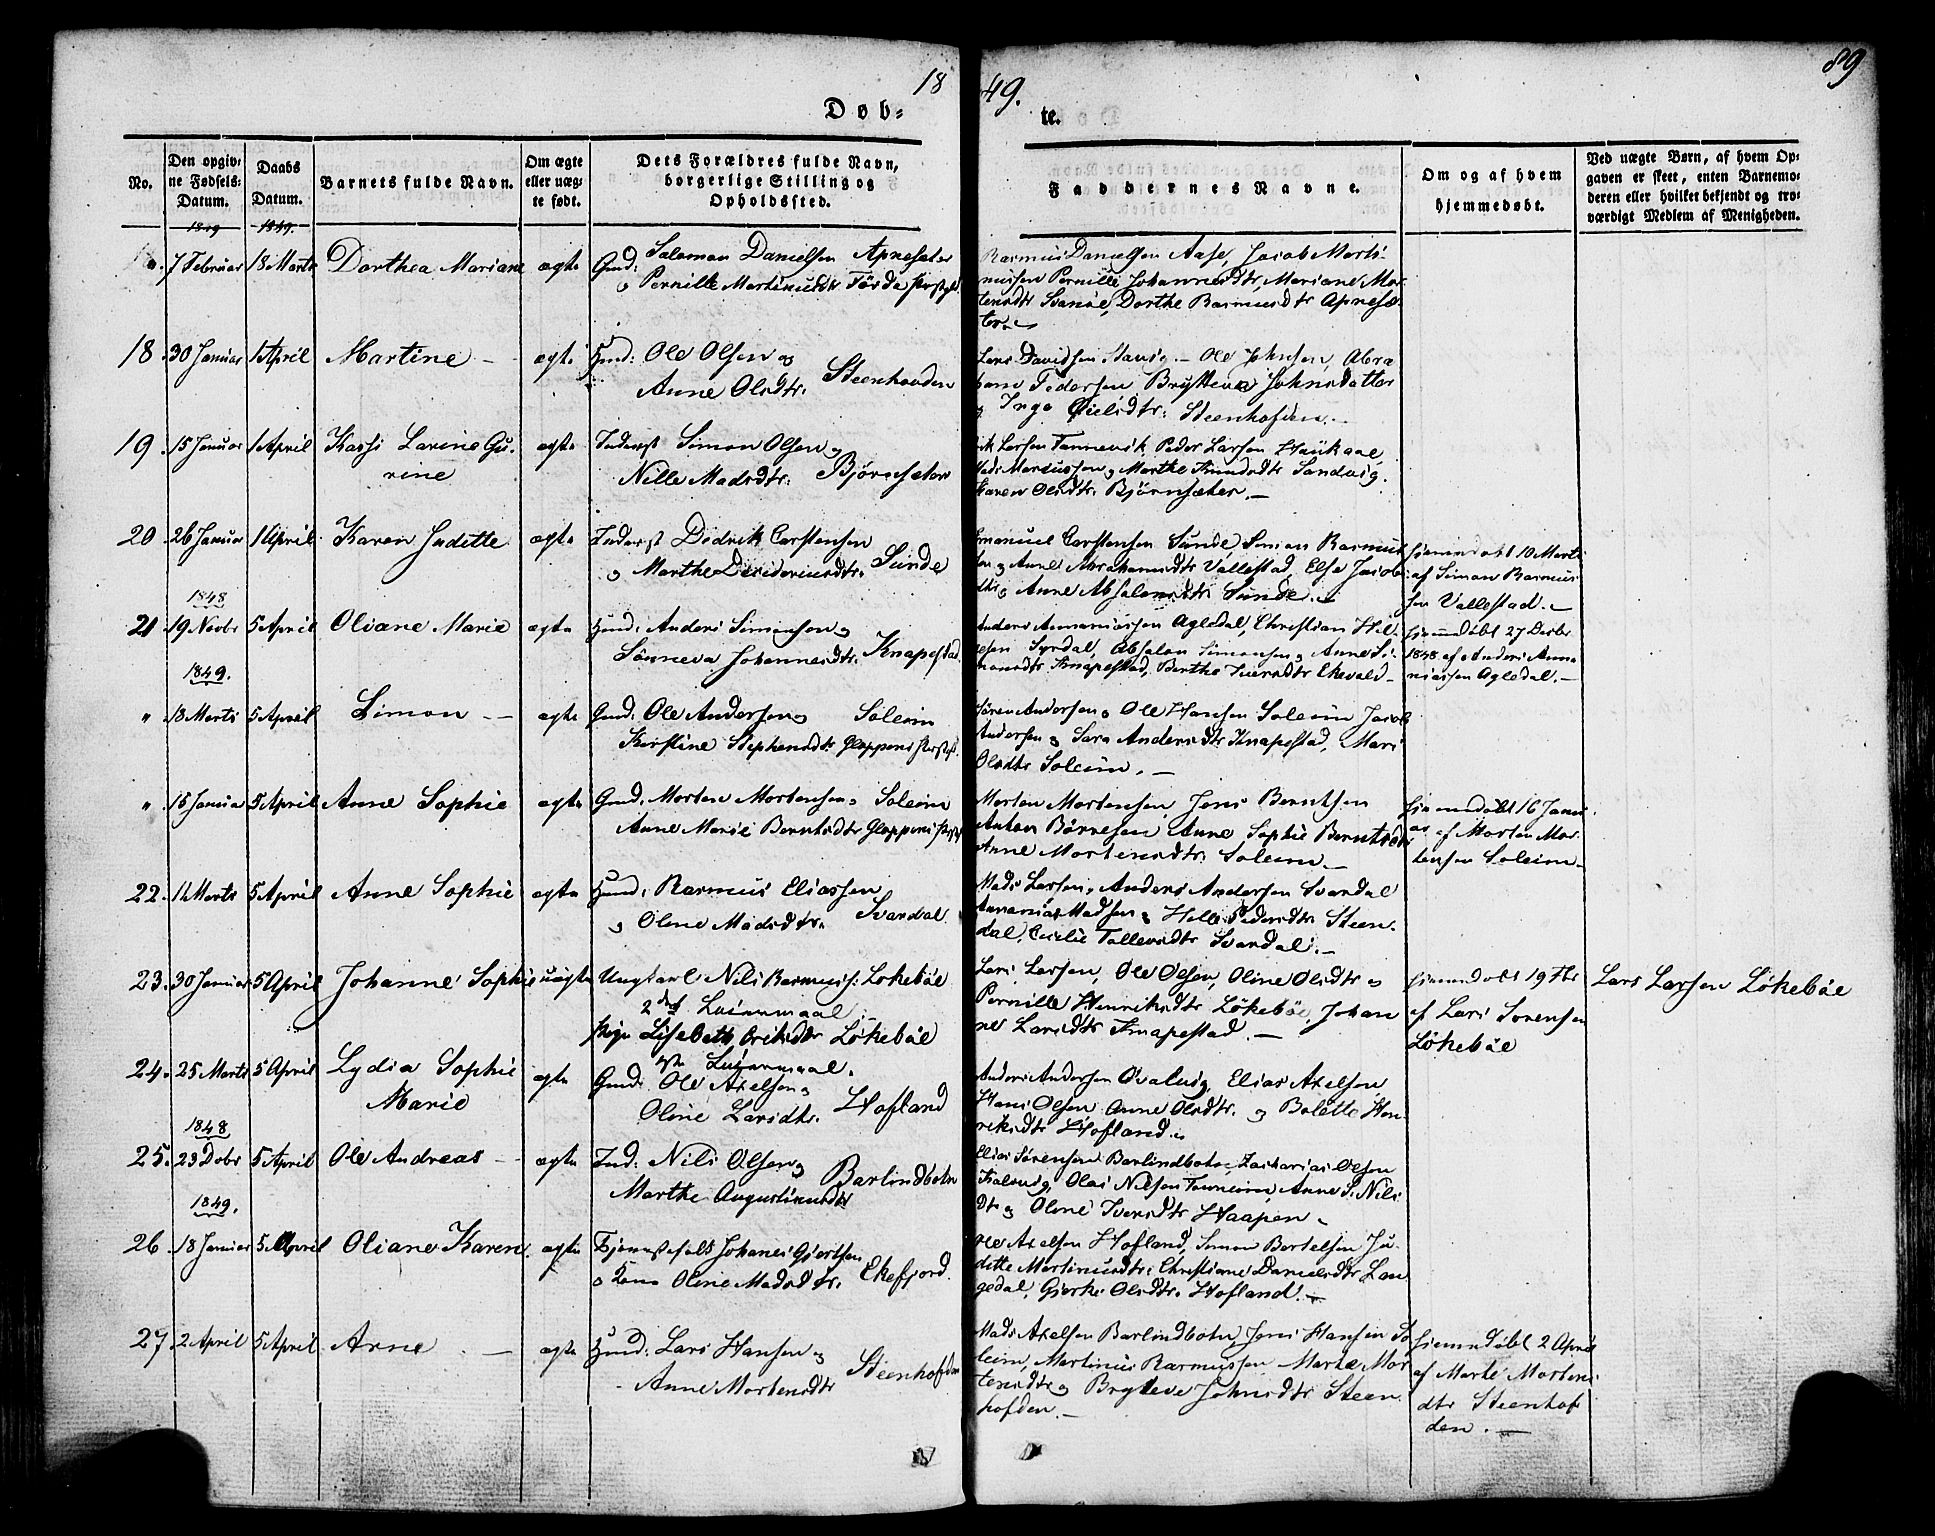 18
49.
89
Døb-
te.
No.
Den opgiv-
ne Fødsels-
Datum.
Daabs
Datum.
Barnets fulde Navn.
Om ægte
eller uæg-
te født.
Dets Forældres fulde Navn,
borgerlige Stilling og
Opholdssted.
Faddernes Navne.
Om og af hvem
hjemmedøbt.
Ved uægte Børn, af hvem Op-
gaven er skeet, enten Barnemo-
deren eller hvilket bekjendt og tro-
værdigt Medlem af Menigheden.
1849 1849.
" 7 Februar 18 Marts Dorthea Mariane ægte Gmd: Salomon Danielsen Apneseter
og Pernille Martinusdtr Förde
Rasmus Danielsen Aase, Jacob Morti-
nussen Pernille Johannesdtr, Mariane Mor-
tensdtr Svanöe, Dorthe Rasmusdtr Apnesæ-
ter
18. 30 Januar 1 April Martine — ægte Huusmd: Ole Olsen og
Anne Olsdtr. Steenhovden
Lars Davidsen — Ole Johnsen, Abra-
ham Pedersen Bryteva Johnsdatter
og Inga Steenhofden. —
19. 15 Januar 1 April Larine Gu-
rine ægte Inderst Simon Olsen og
Nille Madsdtr: Bjørnsæter
Larsen Tannevik Peder Larsen Haukaae,
Mads Marcussen og Marthe Sandvig.
Karen Olsdtr: Bjørnsæter. —
20 26 Januar 1 April Karen Juditte ægte Inderst Didrik Carstensen
og Marthe Desideriusdtr. Sunde
Emanuel Carstensen Sunde, Simon Rasmus-
sen og Anne Abrahamsdtr Vallestad, Else Jacobs-
dtr og Anne Absalonsdtr Sunde. —
hjemmedøbt 10 Marts
af Simon Rasmus-
sen Vallestad. —
1848
21 19 Novbr 5 April Oliane Marie ægte Huusmd: Anders Simonsen og
Sönneva Johannesdtr. Knapestad
Anders Annaniassen Agledal, Christian
Syrdal, Absalon Simonsen og Anne Si-
monsdtr Knapestad, Berthe Iversdtr Ekevald —
hjemmedøbt 27 Decbr
1848 af Anders Anna-
niassen Agledal. —
1849.
" 18 Marts 5 April Simon — ægte Gmd: Ole Andersen og Soleim
Kirstine Stephensdtr Gloppens
Sören Andersen og Ole Hansen Soleim Jacob
Andersen og Sara Andersdtr Knapestad, Mari
Olsdtr Soleim. —
" 15 Januar 5 April Anne Sophie ægte Gmd: Morten Mortensen Soleim
Anne Marie Berntsdtr Gloppens
Morten Mortensen, Jens Berntsen
Anton Börresen, Anne Sophie Berntsdtr
Anne Mortensdtr Soleim —
hjemmedøbt 16 Janu-
ar af Morten Mor-
tensen Soleim —
22. 11 Marts 5 April Anne Sophie ægte Huusmd: Rasmus Eliassen
og Oline Madsdtr. Svardal
Mads Larsen, Anders Andersen Svardal
Annanias Madsen og Helle Pedersdtr Steen-
dal, Cicilie Tollevsdtr Svardal. —
23. 30 Januar 5 April Johanne Sophie uægte Ungkarl Nils Rasmuss: Løkebøe
2det Leiermaal
Pige Lisebeth Eriksdtr Løkebøe
1ste Leiermaal.
Lars Larsen, Ole Olsen, Oline Olsdtr og
Pernille Henriksdtr Løkebøe, Johan-
ne Larsdtr Knapestad. —
hjemmedøbt 19 Fbr
af Lars Sorensen
Løkebøe
Lars Larsen Løkebøe
24. 25 Marts 5 April Lydia Sophie
Marie ægte Gmd: Ole Axelsen og
Oline Larsdtr. Hofland
Anders Andersen Qvalvig, Elias Axelsen
Hans Olsen Anne Olsdtr. og Bolette Hen-
riksdtr Hofland.
1848
25. 23 Dcbr 5 April Ole Andreas — ægte Ind: Nils Olsen og
Marthe Augustinusdtr Barlindbotn
Elias Sörensen Barlindbotn, Zacharias Olsen
Olai Nilsen Tonneim, Anne S. Nils-
dtr og Oline Iversdtr Haapen
1849.
26 18 Januar 5 April Oliane Karen ægte Johanes Giertsen
og Kone Oline Madsdtr. Ekefjord.
Ole Axelsen Hofland, Simon Bertelsen Ju-
ditte Martinusdtr: Christiane Danielsdtr Lan-
gedal, Gjerke Olsdtr. Hofland. —
27. 2 April 5 April Anne — ægte Huusmd: Lars Hansen og
Anne Mortensdtr Steenhofden
Mads Axelsen Barlindbotn, Jens Hansen So-
leim, Martinus Rasmussen Marte Mor-
tensdtr og Bryteve Johnsdtr Steen-
hofden. —
hjemmedøbt 2 April
af Marte Mortens-
dtr Steenhof-
den. —